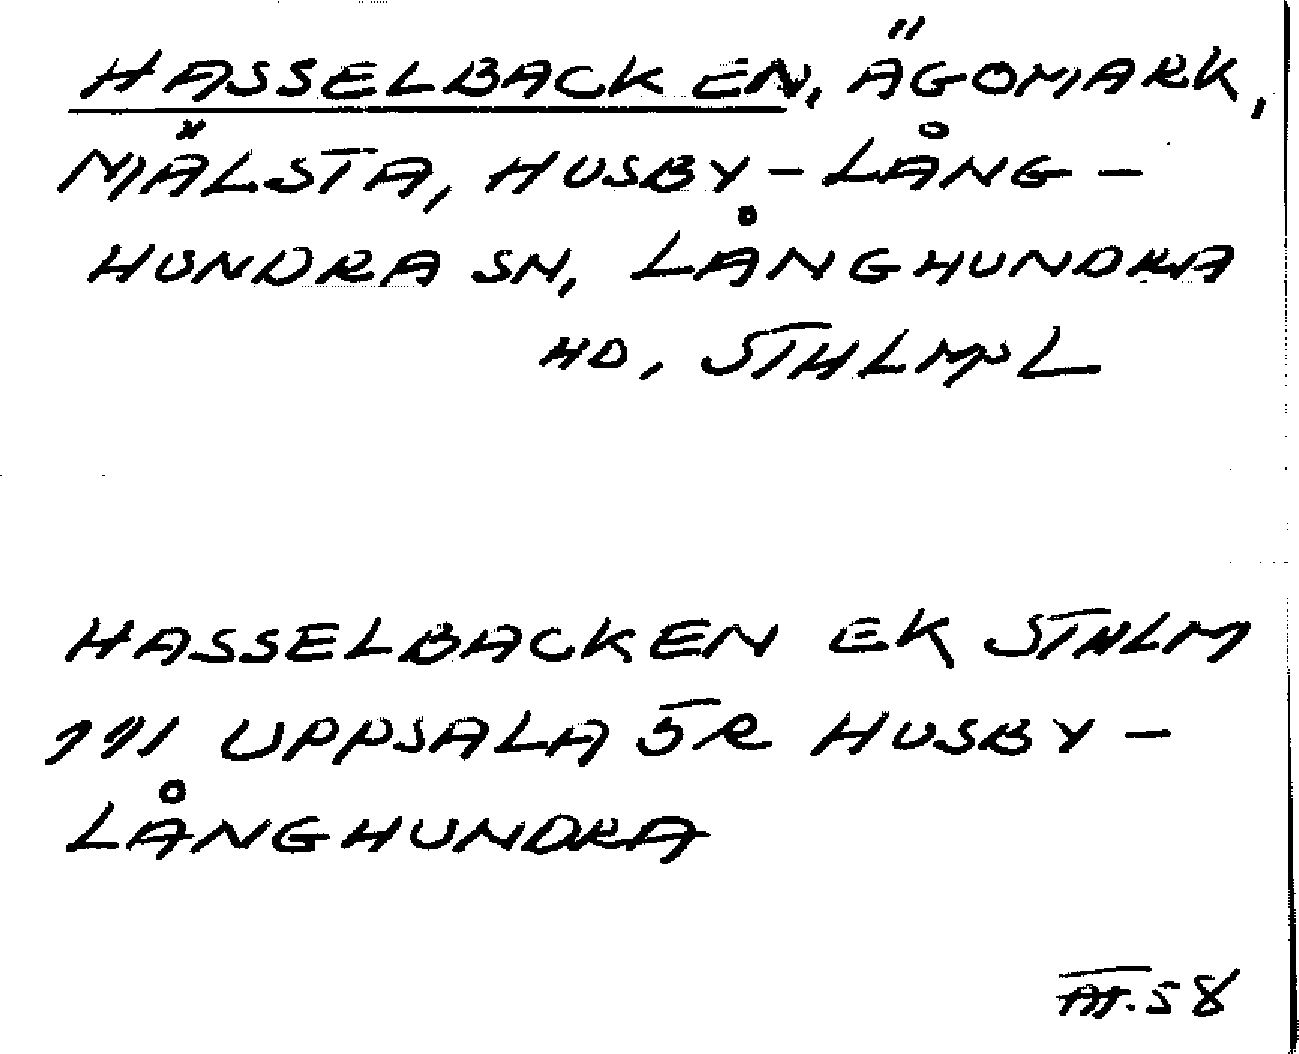 HASSELBACKEN, ÄGOMARK,
MÄLSTA, HUSBY-LÅNG-
HUNDRA SN, LÅNGHUNDRA
HD, STHLM L
HASSELBACKEN EK STHLM
111 UPPSALA 5R HUSBY-
LÅNGHUNDRA
58